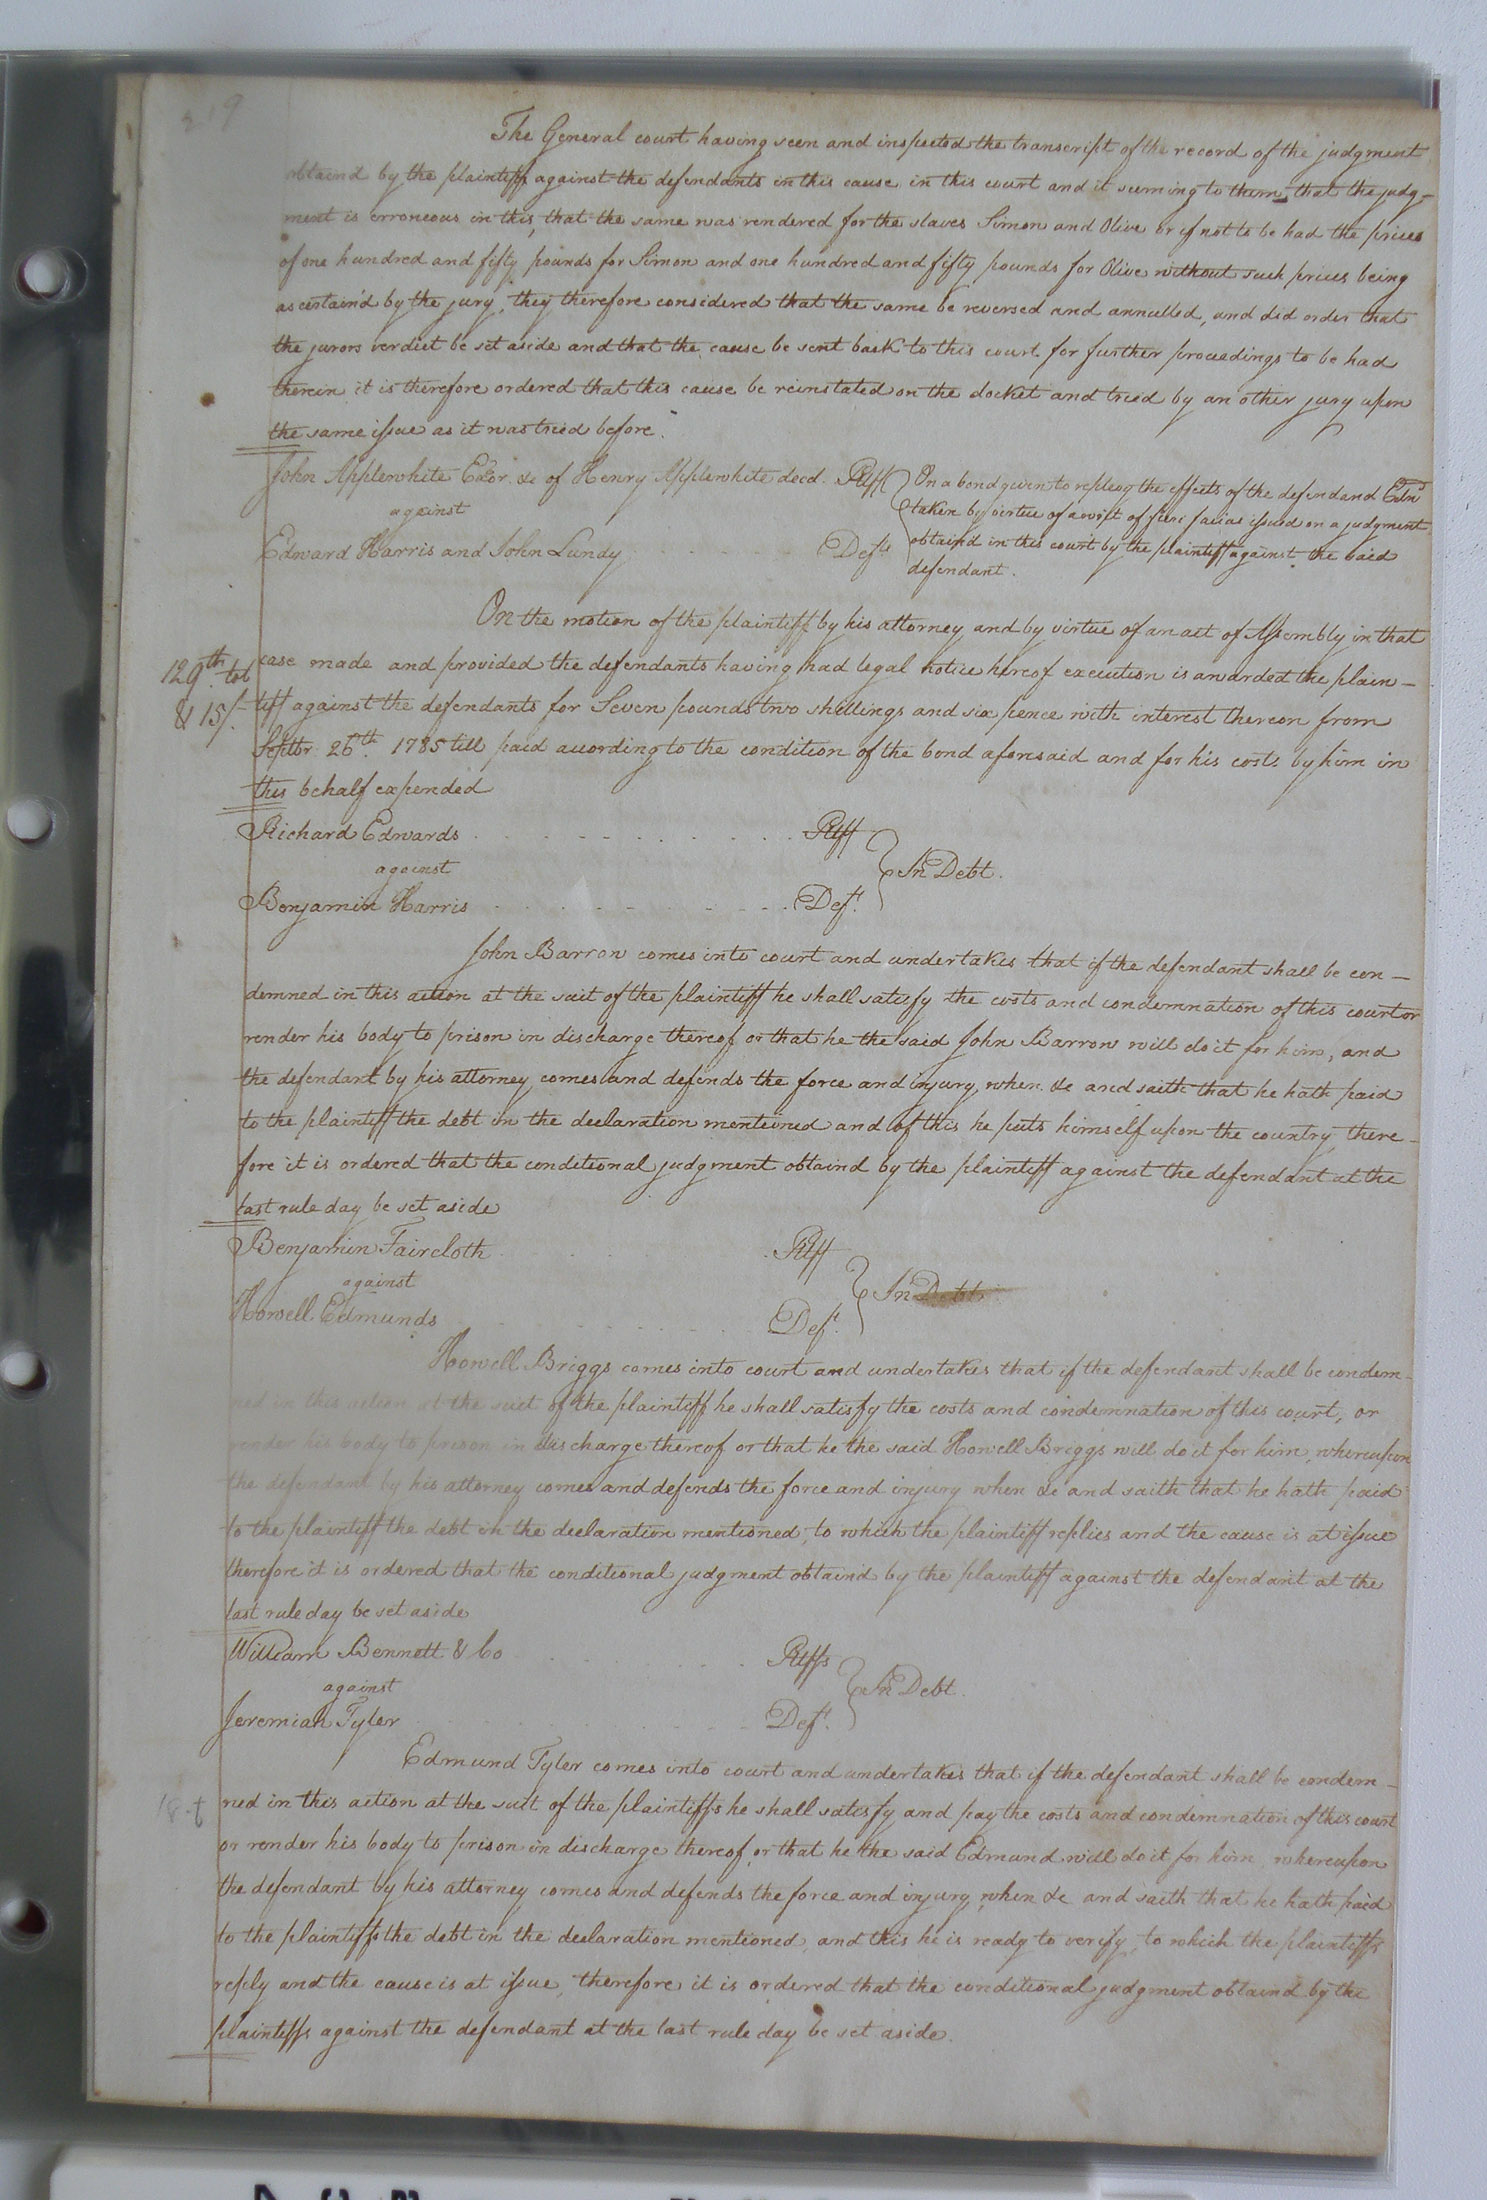 219
The General court having seen and inspected the transcript of the record of the judgment
obtaind by the plaintiff against the defendants in this cause in this court and it seeming to them that the judg-
ment is erroneous in this, that the same was rendered for the slaves Simon and Olive or if not to be had the prices
of one hundred and fifty pounds for Simon and one hundred and fifty pounds for Olive without such prices being
ascertain'd by the jury, they therefore considered that the same be reversed and annulled, and did order that
the jurors verdict be set aside and that the cause be sent back to this court for further proceedings to be had
therein it is therefore ordered that this cause be reinstated on the docket and tried by an other jury upon
the same issue as it was tried before.
John Applewhite Exor. &c of Henry Applewhite decd. Pltff
against
Edward Harris and John Lundy Defts
On a bond given to replevy the effects of the defendand Edwd
taken by virtue of a writ of fieri facias issued on a judgment
obtaind in this court by the plaintiff against the said
defendant.
On the motion of the plaintiff by his attorney and by virtue of an act of Assembly in that
129th. tob
& 15/-
case made and provided the defendants having had legal notice hereof execution is awarded the plain-
tiff against the defendants for Seven pounds two shillings and six pence with interest thereon from
Septbr. 26th. 1785 till paid according to the condition of the bond aforesaid and for his costs by him in
this behalf expended
Richard Edwards Pltff
against
In Debt.
Benjamin Harris Deft.
John Barron comes into court and undertakes that if the defendant shall be con-
demned in this action at the suit of the plaintiff he shall satisfy the costs and condemnation of this court or
render his body to prison in discharge thereof or that he the said John Barron will do it for him, and
the defendant by his attorney comes and defends the force and injury when &c and saith that he hath paid
to the plaintiff the debt in the declaration mentioned and of this he puts himself upon the country there-
fore it is ordered that the conditional judgment obtaind by the plaintiff against the defendant at the
last rule day be set aside
Benjamin Faircloth Pltff
against
In Debt
Howell Edmunds Deft.
Howell Briggs comes into court and undertakes that if the defendant shall be condem-
ned in this action at the suit of the plaintiff he shall satisfy the costs and condemnation of this court, or
render his body to prison in discharge thereof or that he the said Howell Briggs will do it for him, whereupon
the defendant by his attorney comes and defends the force and injury when &c and saith that he hath paid
to the plaintiff the debt in the declaration mentioned, to which the plaintiff replies and the cause is at issue
therefore it is ordered that the conditional judgment obtaind by the plaintiff against the defendant at the
last rule day be set aside
William Bennett & Co Pltffs
against
In Debt.
Jeremiah Tyler Deft.
Edmund Tyler comes into court and undertakes that if the defendant shall be condem-
ned in this action at the suit of the plaintiffs he shall satisfy and pay the costs and condemnation of this court
or render his body to prison in discharge thereof or that he the said Edmund will do it for him, whereupon
the defendant by his attorney comes and defends the force and injury when &c and saith that he hath paid
to the plaintiffs the debt in the declaration mentioned, and this he is ready to verify, to which the plaintiffs
reply and the cause is at issue, therefore it is ordered that the conditional judgment obtaind by the
plaintiffs against the defendant at the last rule day be set aside.